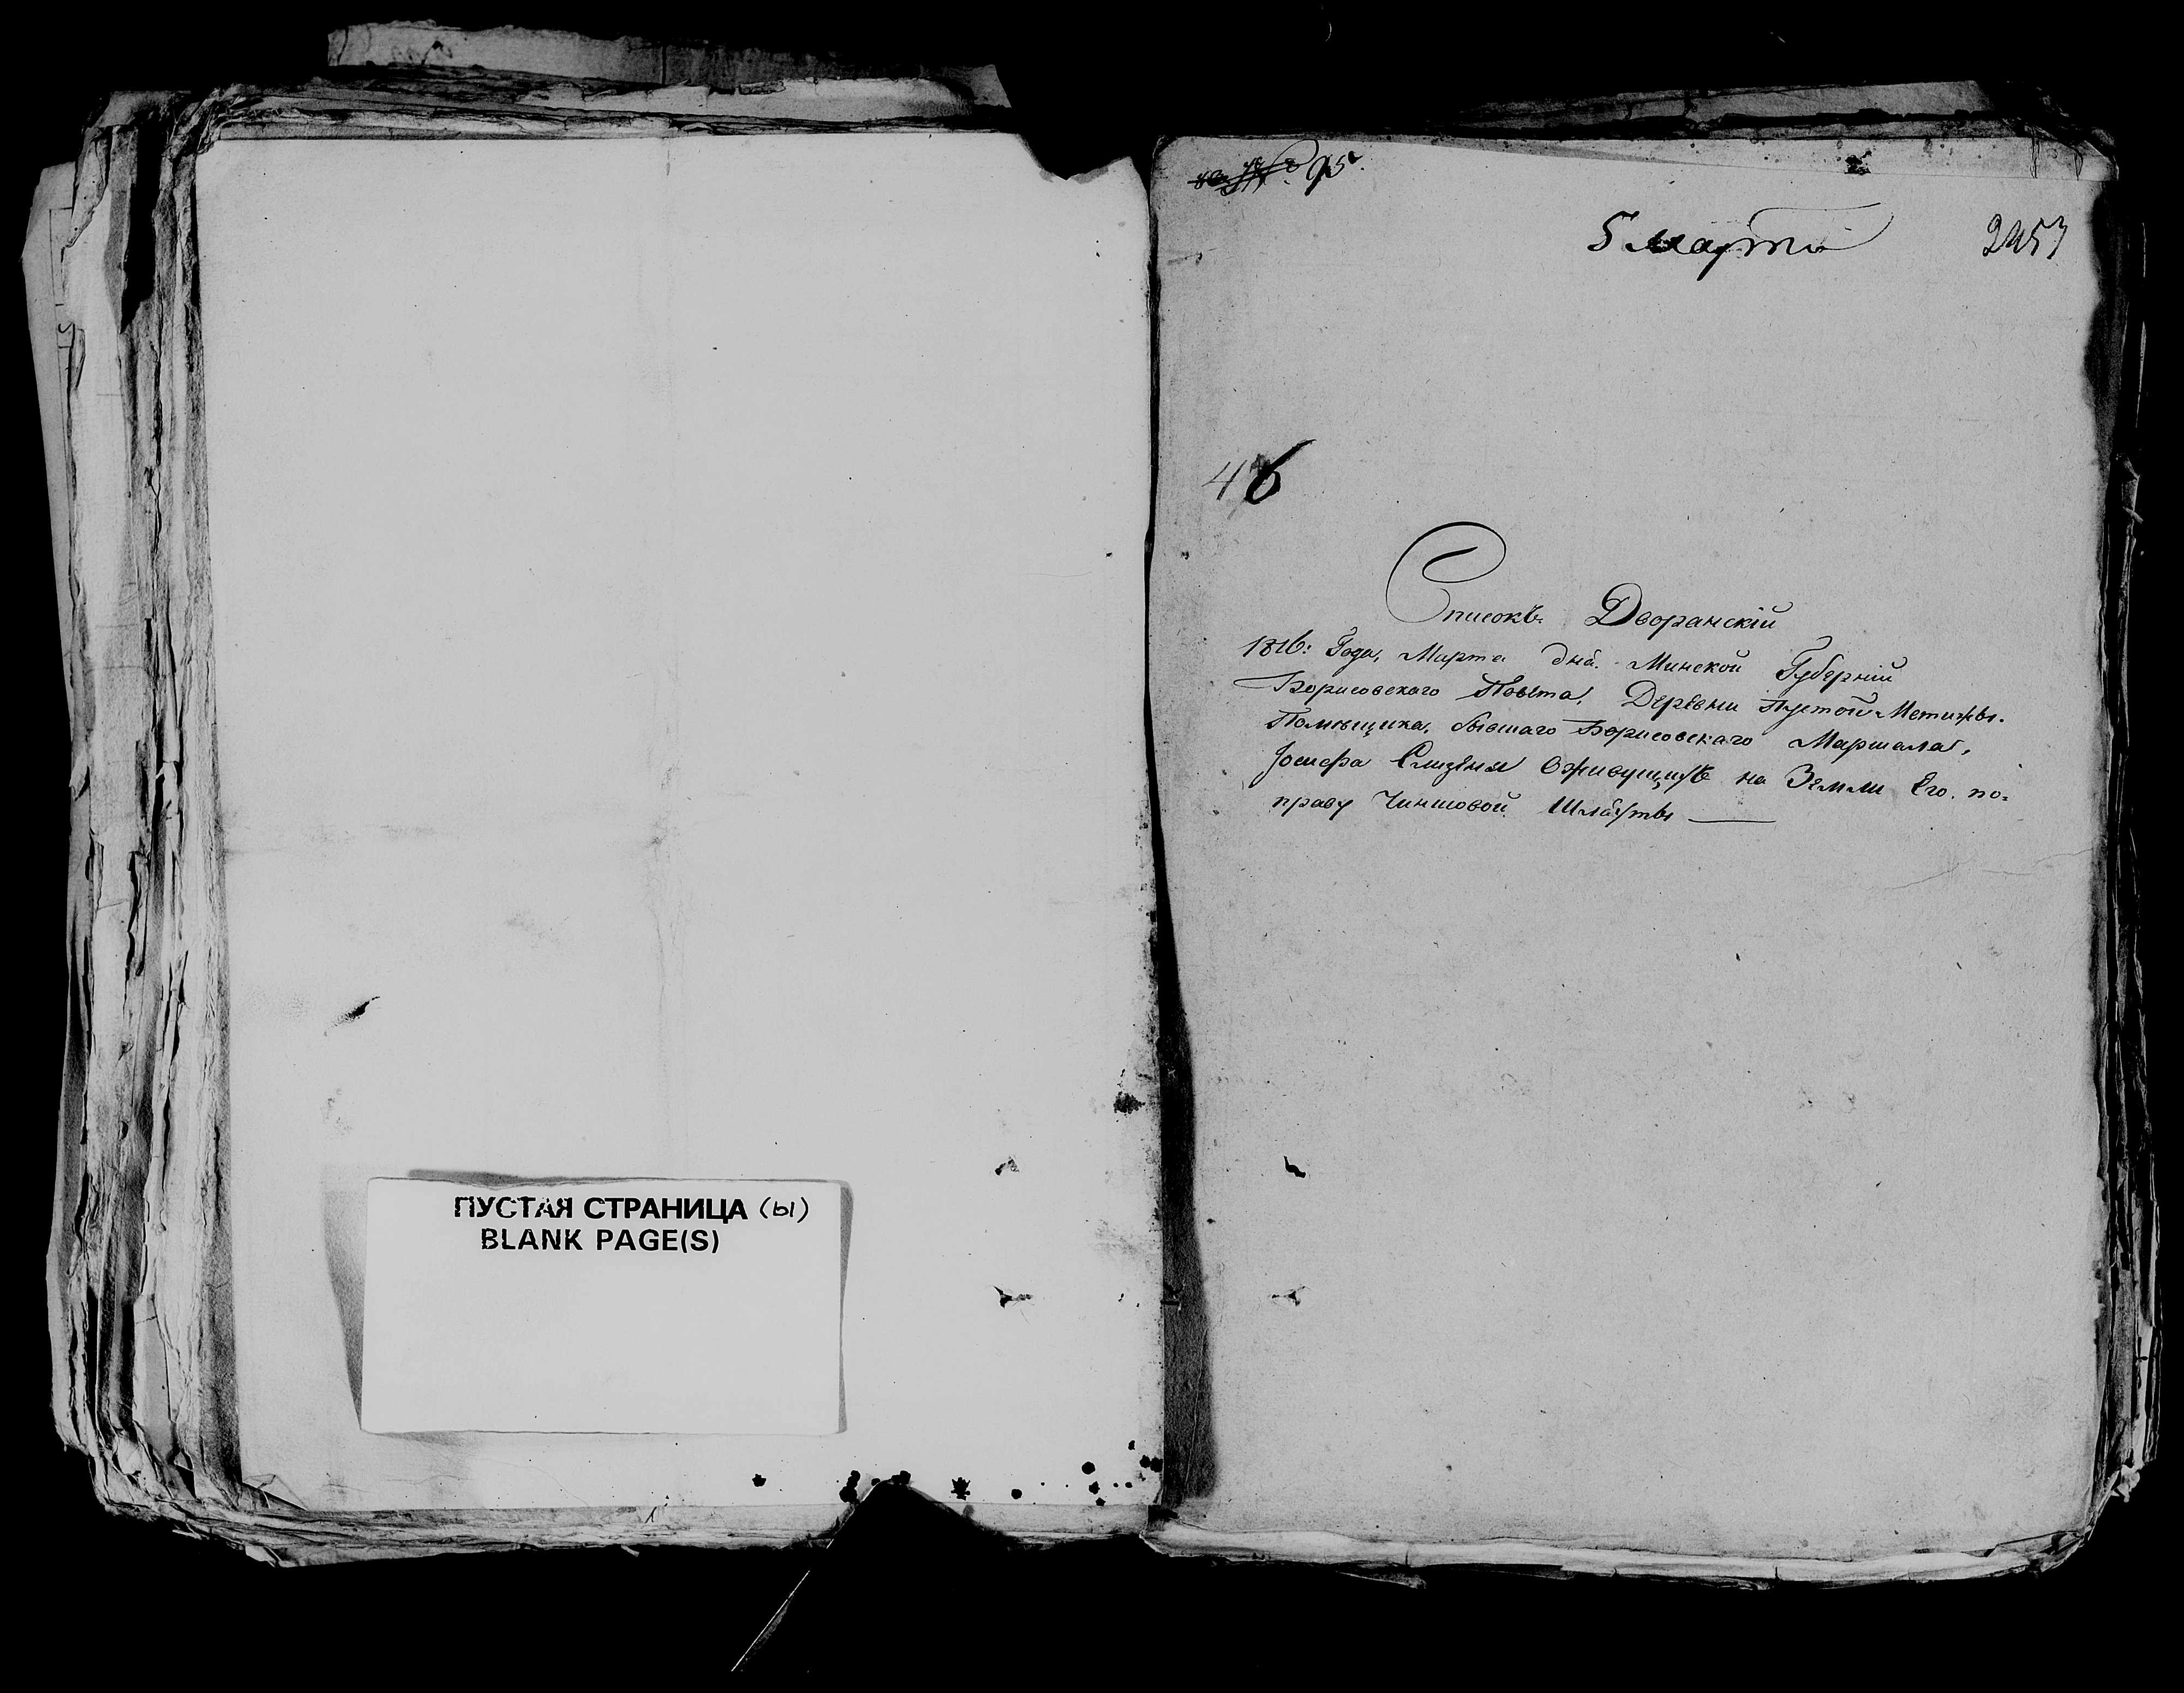 ПУСТАЯ СТРАНИЦА (ы)
BLANK PAGE(S)
95.
5 марта
2453
46
Списокъ Дворанскій
1816: Года, Марта дня. Минской Губерніи
Борисовскаго Повѣта, Деревни Пустой Мстижы.
Помѣщика, бывшаго Борисовскаго Маршала,
Іосифа Слизѣня вживущихъ на Земли Его. по=
праву Чиншовой Шляхты